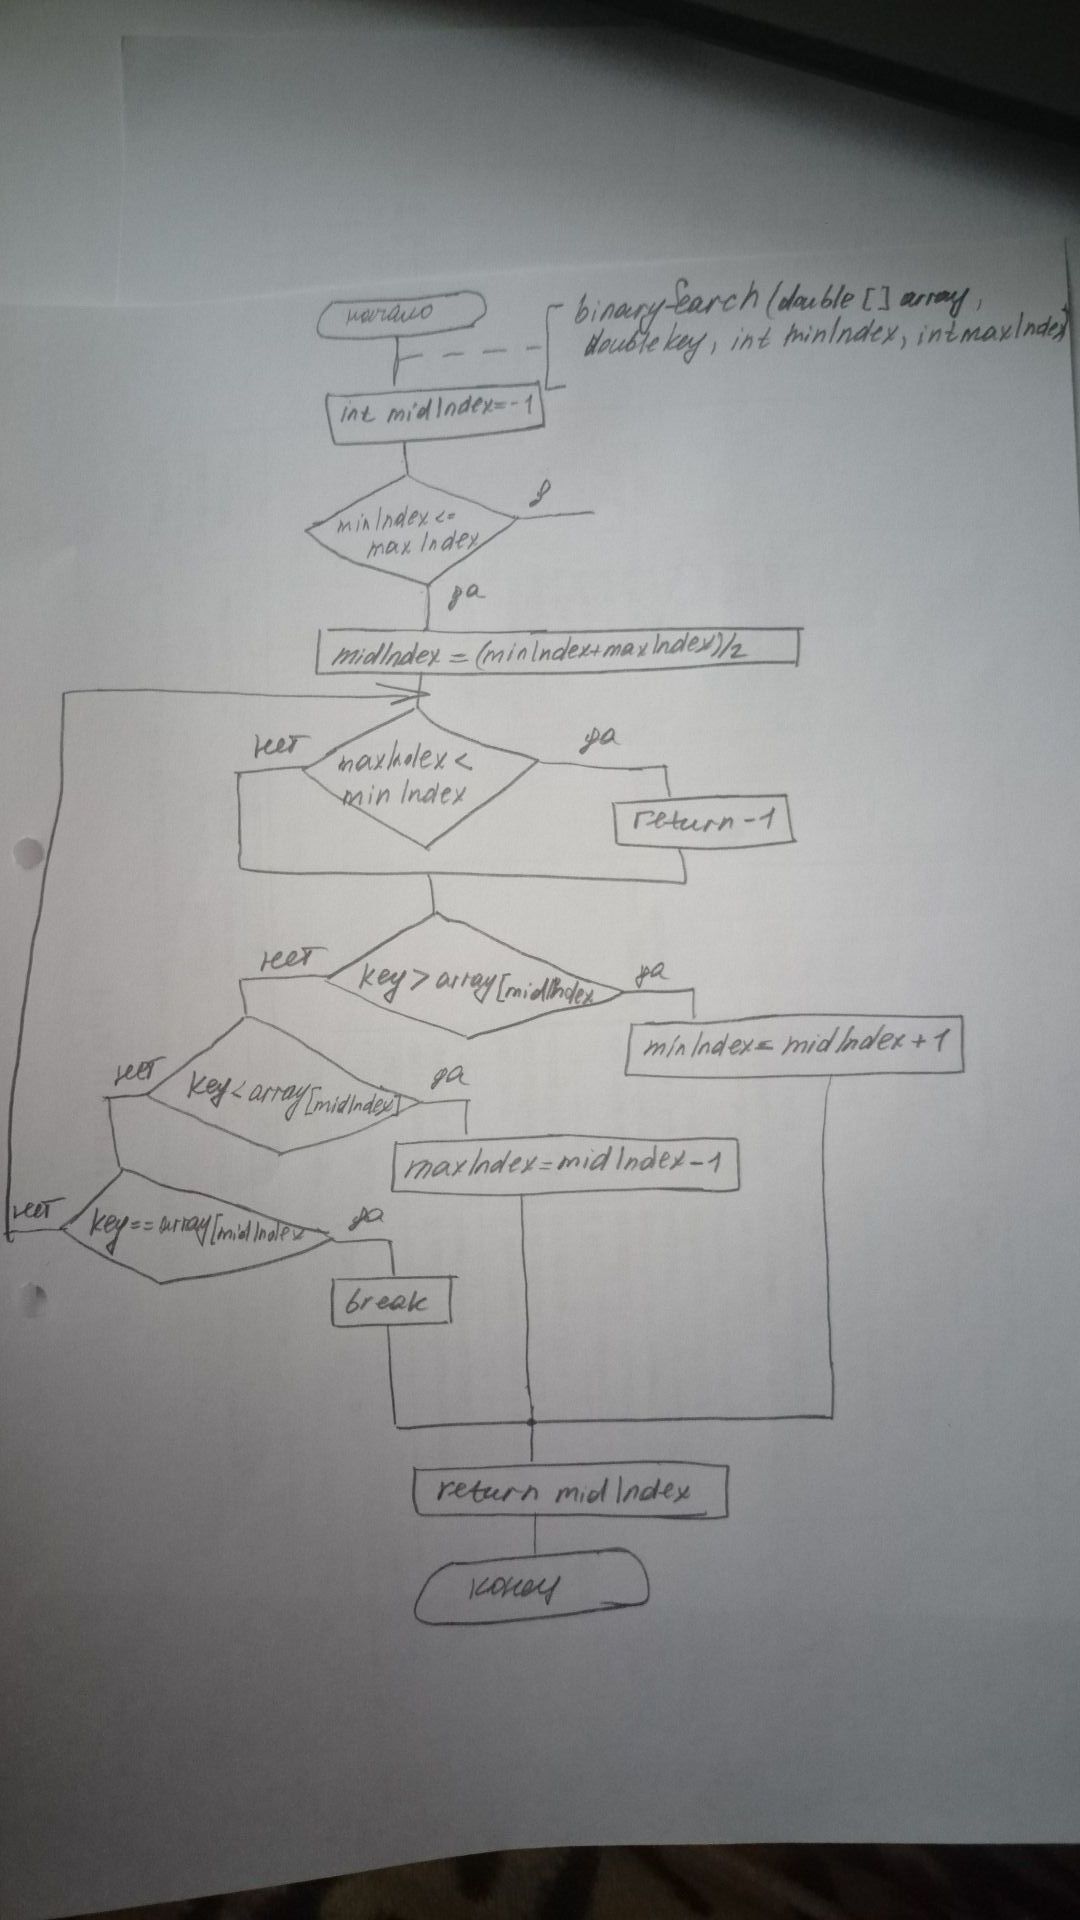 начало
binarySearch (double [] array,
double key, int minIndex, int maxIndex)
int midIndex=-1
minIndex<=
maxIndex
да
midIndex = (minIndex+maxIndex)/2
нет
да
maxIndex <
minIndex
return -1
нет
да
key > array[midIndex
minIndex = midIndex + 1
нет
да
key < array[midIndex]
maxIndex = midIndex - 1
нет
да
key == array[midIndex
break
return midIndex
конец